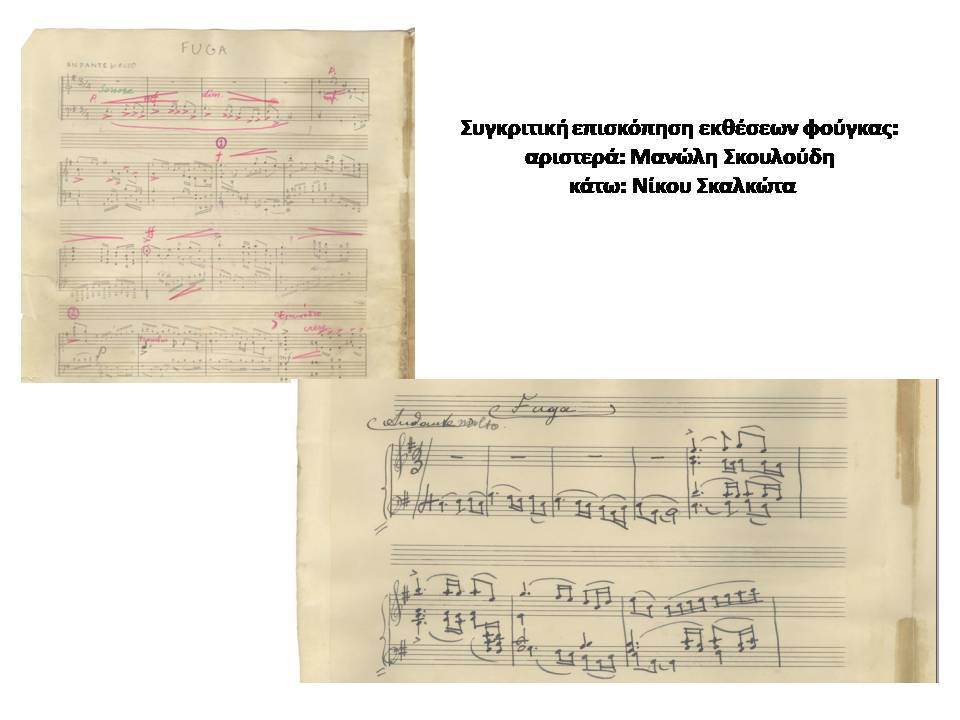 FUGA
ANDANTE MOLTO
Sonore
P. mf dim. P.
mf
1
f
2
cresc.
Συγκριτική επισκόπηση εκθέσεων φούγκας:
αριστερά: Μανώλη Σκουλούδη
κάτω: Νίκου Σκαλκώτα
Fuga
Andante molto.
3
4